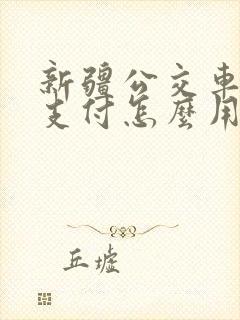 新疆公交車
支付怎麼用
丘墟